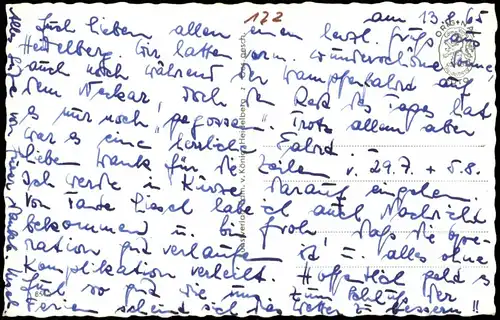 122
am 13.8.65
Euch lieben allen einen herzl. Gruß aus
Heidelberg. Wir hatten vorm. wunderschöne Sonne
auch noch während der Dampferfahrt auf
dem Neckar, doch den Rest des Tages hat
es nur noch "gegossen". Trotz allem aber
war es eine herrliche Fahrt.
Lieben Dank für die Zeilen v. 29.7 + 5.8.
Ich werde in Kürze darauf eingehen.
Von Tante Liesel habe ich auch Nachricht
bekommen u. bin froh, daß die Ope-
ration gut verlaufen ist u. alles ohne
Komplikation verheilt. Hoffentlich geht es
Euch so gut die nun zum Schluß der
Ferien scheint sich das Wetter zu bessern!!
Alles Liebe von